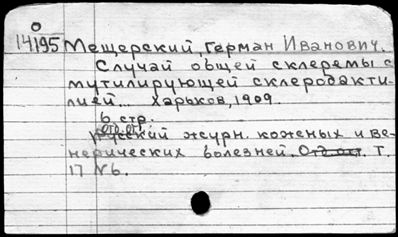 О
14195 Мещерский, Герман Иванович.
Случай общей склеремы с
мутилирующей склеродакти-
лией... Харьков, 1909.
6 стр.
отд. отт.
русский журн. кожных и ве-
нерических болезней. Отд. отт. Т.
17 №6.